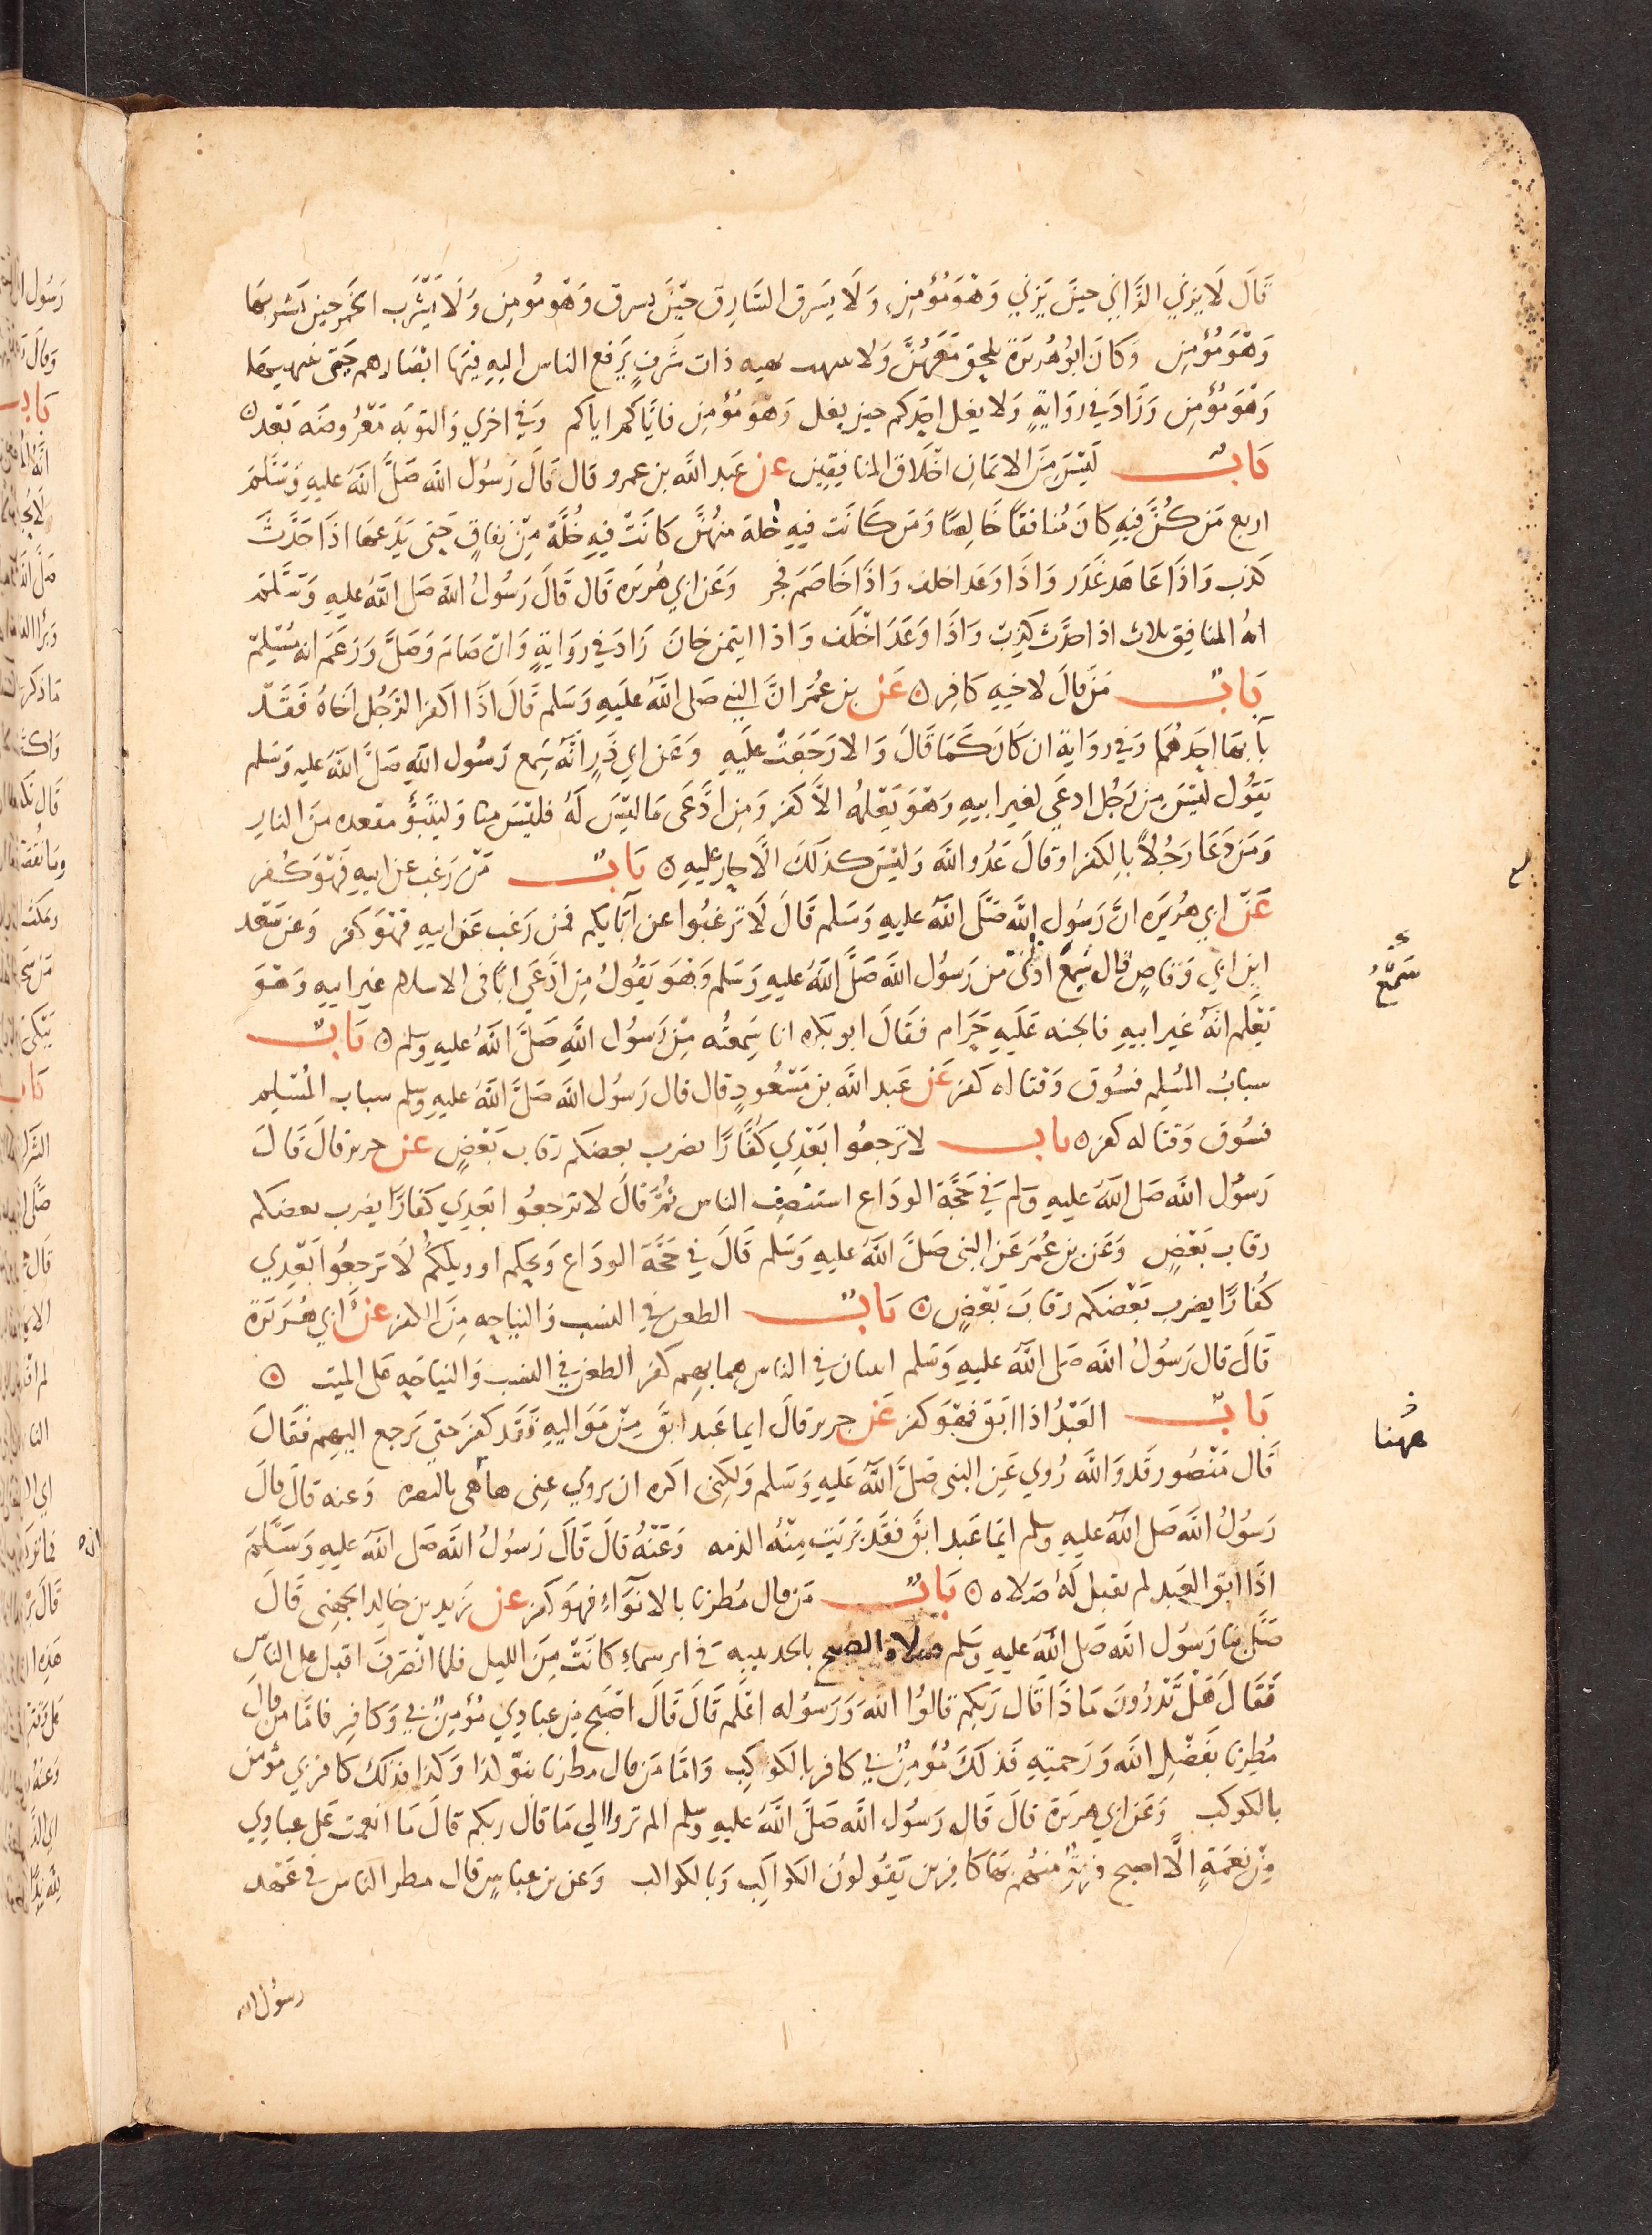 قَالَ لَا يزني الزَّاني حينَ يَزني وَهْوَ مُؤمِن وَلَا يسَرق السَّارِق حيْنَ يسرق وَهْوَ مُومِن وَلَا يَشْرَب الخَمرَ حينَ يَشربهَا
وَهْوَ مُؤْمِن وَكَانَ ابُو هُرَيرَةَ يلحِق مَعَهُنَّ وَلا ينهب نهبه ذات شَرَفٍ يَرفع الناس اليهِ فيْهَا ابْصَارهم حيَن ينهبهَا
وَهْوَ مُؤْمِن وَزَادَ في رِوَايةٍ وَلا يغل احَدكم حين يغل وَهْوَ مُؤْمِن فايَّاكم اياكم وَفي اخري وَالتوبَه مَعْرُوضَه بَعْد
بَابٌ لَيْسَ مِنَ الايمَان اخْلَاق المنافِقِين عن عَبد اللَّه بن عمرو قال قَالَ رَسُول اللَّه صَلَّ اللَّهُ عليهِ وَسَلَّمَ
اربع مَن كُنَّ فيهِ كانَ مُنافقًا خَالِصًا وَمَن كَانَت فيهِ خلة منهُنَّ كَانَتْ فيهِ خُلَّةٌ مِنْ نِفاقٍ حَتى يَدَعهَا اذَا حَدَّثَ
كذب وَاذَا عَاهَد غَدَر وَاذَا وَعَد اخلف وَاذَا خَاصَم فجر وَعَن ابي هُريره قَال قَالَ رَسُولُ اللَّه صَل اللَّهُ عليهِ وَسَّلَّمَ
ايهُ المنافِق ثلاث اذا حَدَّثَ كذِب وَاذَا وَعَدَ اخْلَف وَاذا ايتمن خانَ زَادَ في رِوَايةٍ وَانْ صَامَ وَصَلَّ وَزعَم انه مُسْلِمٌ
بَابٌ مَن قالَ لاخيهِ كَافِر عَن بن عُمَر انَّ النبي صَلى اللَّهُ علَيهِ وَسَلم قَالَ اذَا اكفَر الرَّجُل اخَاهُ فَقَد
بآ بهَا احَدهُمَا وَفي رِوَاية ان كَانَ كَمَا قَالَ وَالا رَجَعَتْ علَيهِ وَعَن ابي ذَرٍ انَّهُ سَمِع رَسُول اللَّه صَلَّ اللَّهُ عليه وَسَلم
يَقُول ليْسَ مِن رَجُل ادعَي لغير ابيهِ وَهْوَ يَعْلمُه الاَّ كفَر وَمِن ادَّعَى مَا ليْسَ لَهُ فليْسَ منا وَليَتَبَوَّأ مقعده مِنَ النار
وَمَن دَعَا رَجُلاً بالكفر او قالَ عَدُو اللَّه وَليْسَ كذلَكَ الَّا حَار عليهِ بَابٌ مَنْ رَغب عن ابيهِ فَهْوَ كُفر
عَنْ ابي هُرَيَره انَّ رَسُول اللَّه صَلَّ اللَّهُ عليهِ وَسَلم قَالَ لَا تَرغبُوا عن آبَايكم فمن رَغب عَن ابيهِ فهْوَ كفر وَعن سَعْد
ابن ابي وَقاصٍ قال سَمِعَ اذني من رَسُول اللَّه صَلَّ اللَّهُ عليهِ وَسَلم وَهْوَ يَقُولُ مَن ادَّعَي ابًا فى الاسلام غير ابيهِ وَهْوَ
يَعْلَم انَّهُ غير ابيهِ فالجنه عَلَيهِ حَرَام فقَالَ ابو بكره انا سَمعتُه مِنْ رَسُول اللَّهِ صَلَّ اللَّهُ عليهِ وسلم بَابٌ
سبابُ المُسْلِم فسُوق وَقتاله كفر عَن عَبد اللَّه بن مَسْعُودٍ قال قال رَسُول اللَّه صَلَّ اللَّهُ عليهِ وسلم سباب المُسْلم
فسُوق وَقتاله كفر باب لا ترجعُوا بَعْدِي كُفَّارًا يضرب بعضكم رقابَ بَعْضٍ عن جرير قالَ قَالَ
رَسُول اللَّه صَل اللَّهُ عليهِ وَلم في حَجَّة الودَاع استنصِت الناس ثُمَّ قَالَ لا تَرجعُوا بَعدِي كفارًا يضرب بعضكم
رقاب بَعْضٍ وَعَن بن عُمَر عَن النبى صَلَّ اللَّهُ عليهِ وَسَلم قَالَ في حَجَّة الودَاع وَيحكم او ويلكمُ لَا تَرجعُوا بَعْدِي
كُفارًا يضرب بَعْضكم رقابَ بَعْضٍ بَابٌ الطعن في النسب وَالنياحه مِنَ الكفر عنْ ابي هُرَيَرَةَ
قَالَ قال رَسُولُ اللَّه صَل اللَّهُ عليهِ وَسَلم اثنتان في الناس هما بهم كفر الطعن في النسب وَالنيَاحَه عَلى الميت
بَابٌ العَبْدُ اذا ابَقَ فَهْوَ كفر عَن جرير قالَ ايما عَبد ابَقَ مِنْ مَوَاليهِ فَقَد كفَر حَتي يَرجع اليهِم فقَالَ
قَال مَنْصُور قَد وَاللَّه رُوي عَن النبي صَلَّ اللَّهُ عَليهِ وَسَلم وَلكِنى اكره ان يروي عنِى هاهى بالبصره وَعنه قالَ قالَ
رَسُولُ اللَّه صَل اللَّهُ عليهِ وسلم ايّما عَبد ابَقَ فقَد بَرئَت مِنْهُ الذمه وَعَنْهُ قالَ قَالَ رَسُولُ اللَّه صَل اللَّهُ عليهِ وَسَلَّمَ
اذَا ابَق العَبد لم تقبل لَهُ صَلاه بَابٌ مَن قال مُطرنا بالانوَآءِ فهوَ كفر عن زَيد بن خالِد الجهنِى قَالَ
صَلَّى بنا رَسُول اللَّه صَل اللَّهُ عليهِ وسَلم صلاة الصبح بالحديبيه في اثر سماءِ كانَتْ مِنَ الليل فلما انْصَرف اقبل على الناس
فَقَالَ هَلْ تَدْرُونَ مَاذَا قَال رَبكم قالوُا اللَّه وَرَسُوله اعْلَم قَالَ قَالَ اصْبَح مِن عبادِي مُؤمِنٌ بي وَكافِر فامَّا من قالَ
مُطِرنا بفَضْلِ اللَّه وَرَحمتِهِ فذلَكَ مُؤمِنٌ بي كافر بالكوكِب وَامَّا مَن قال مطرنا بنَوِّ لذا وَكذا فذلكَ كافر بي مؤمن
بالكوكب وَعَن ابي هريَرة قالَ قَال رَسُول اللَّه صَلَّ اللَّهُ عليهِ وسلم الم تروا الي مَا قال ربكم قالَ مَا انعمت عَلى عبادِي
مِنْ نعَمَةٍ الَّا اصبح فريْقٌ منهُم بهَا كافِرِين يَقُولُونَ الكواكِب وَبالكواكب وَعن بن عباسٍ قال مطر الناس في عَهْد
رسُول الله
سَمْعُ
ههُنا